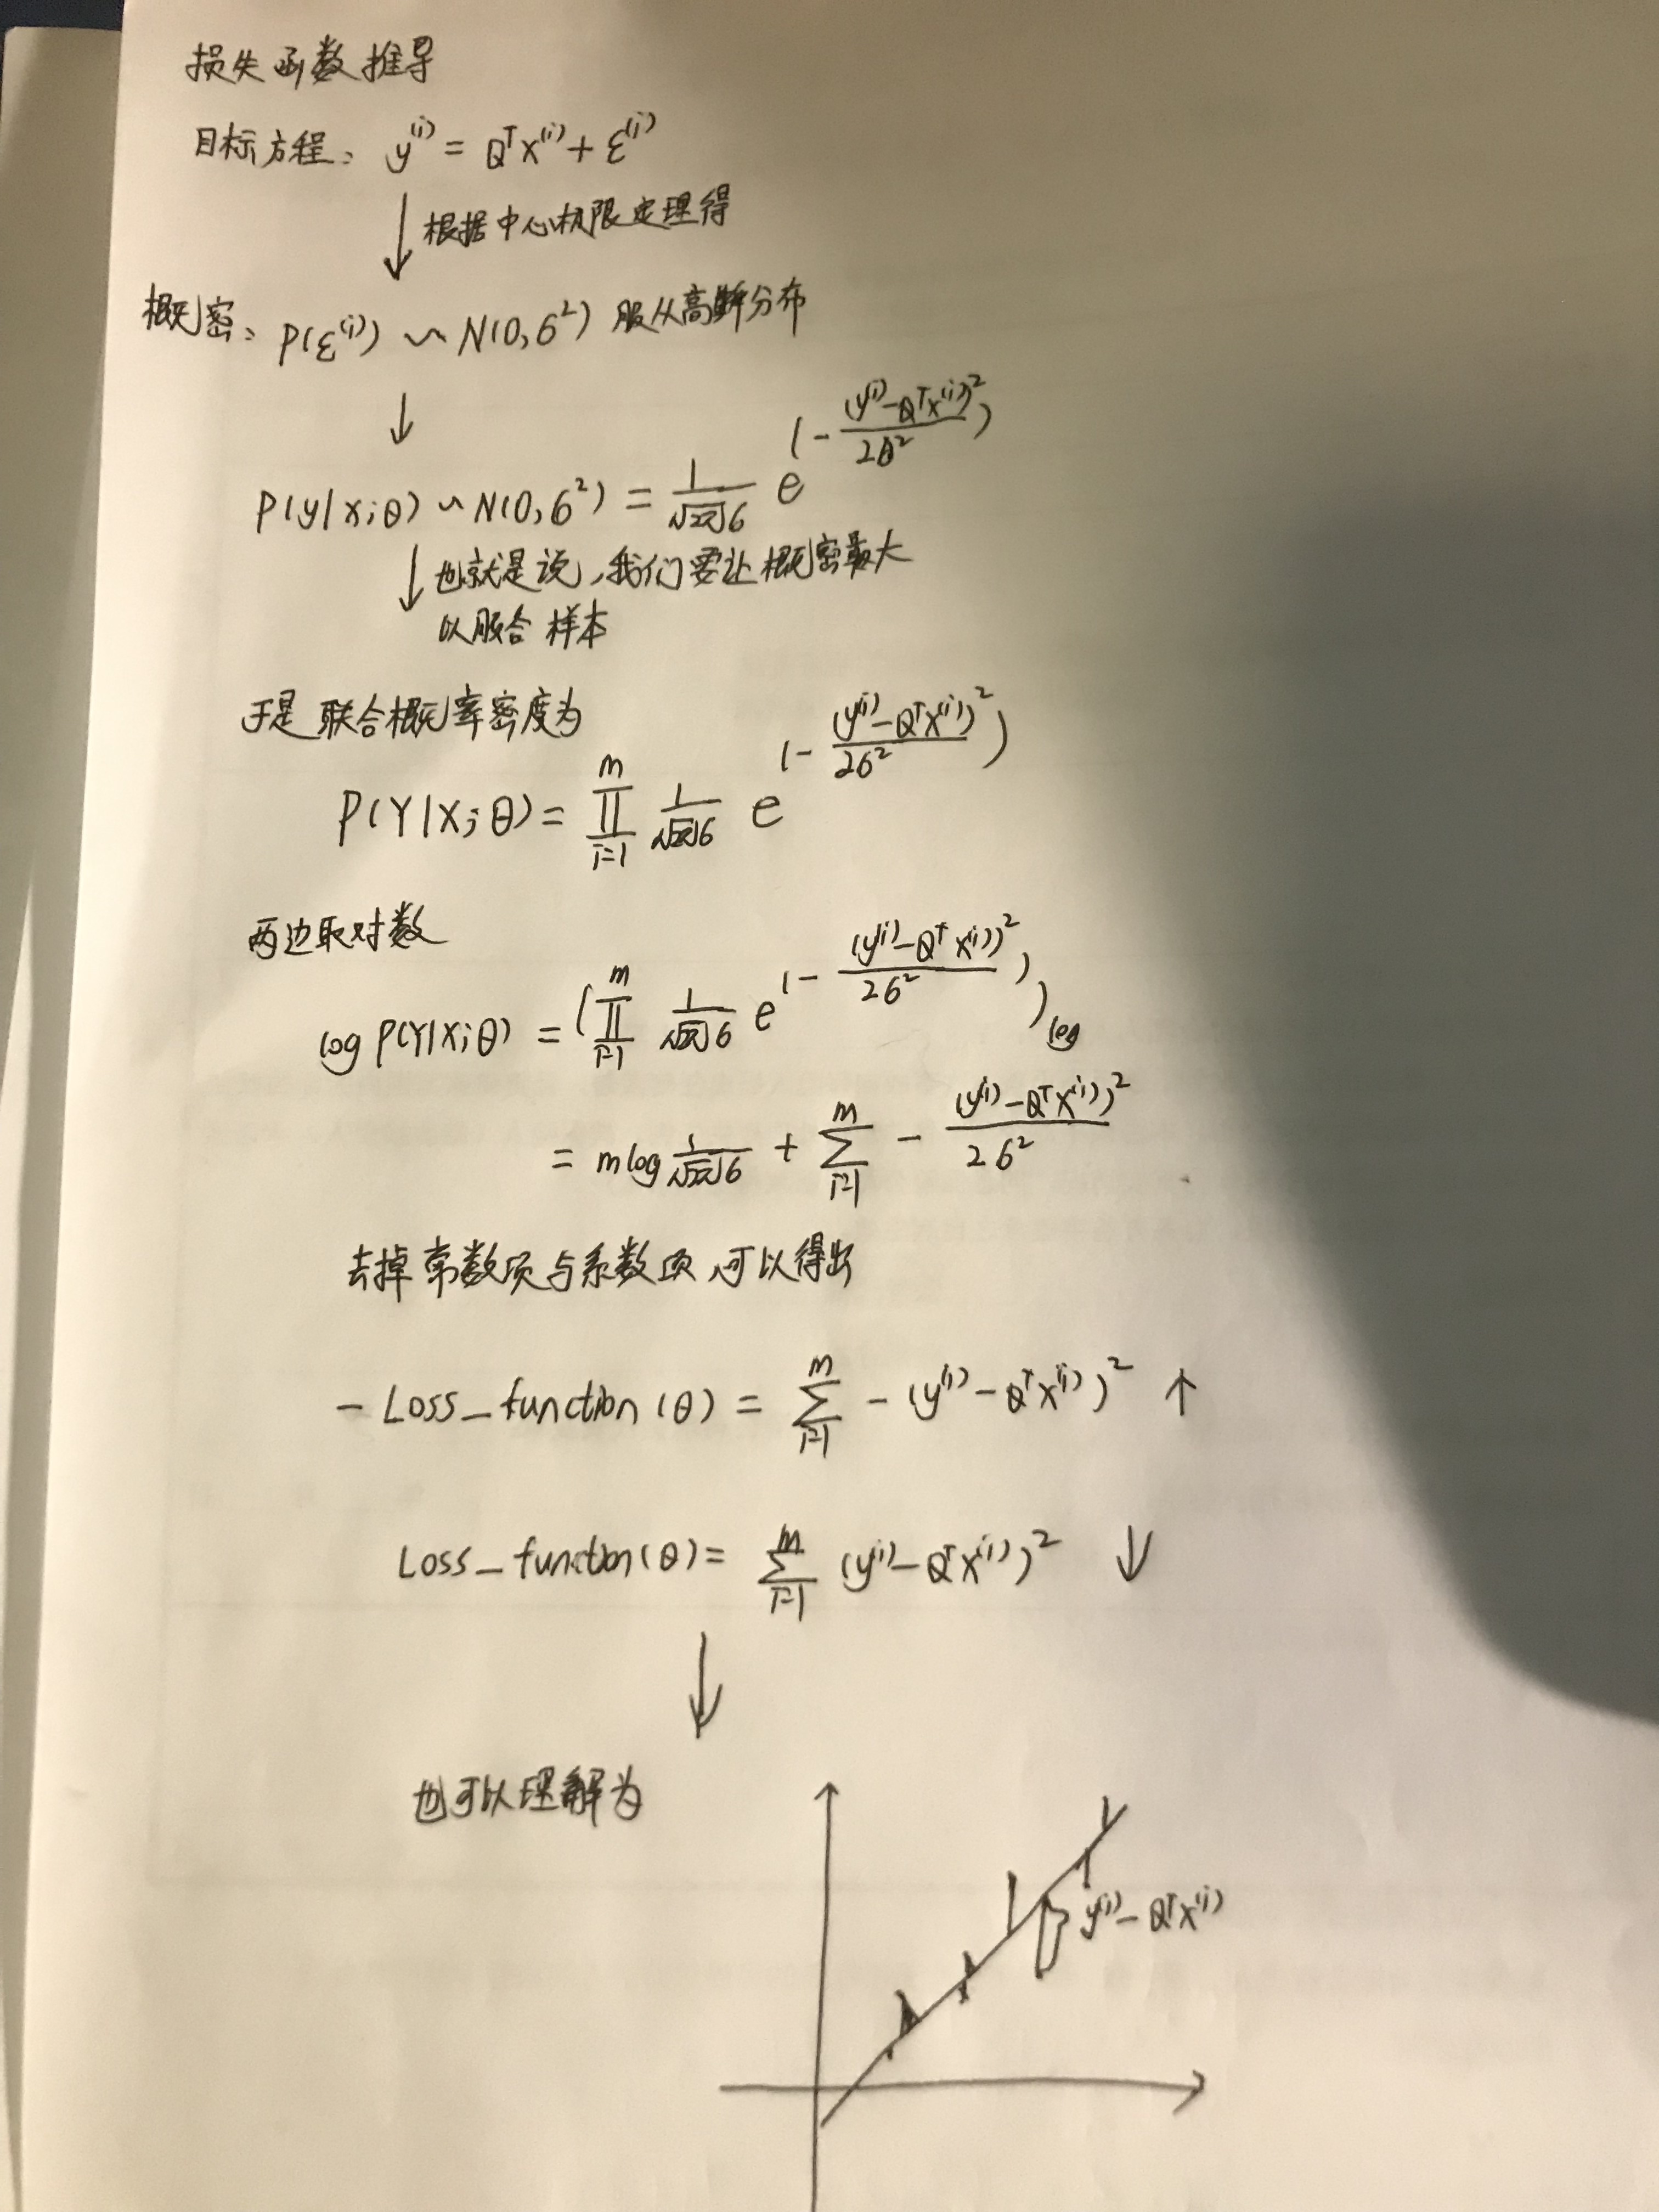 损失函数推导
目标方程: y⁽ⁱ⁾ = QᵀX⁽ⁱ⁾ + ε⁽ⁱ⁾
↓ 根据中心极限定理得
概密: P(ε⁽ⁱ⁾) ~ N(0, 6²) 服从高斯分布
↓
P(y|x;θ) ~ N(0, 6²) = 1/(√2π 6) e^(-(y⁽ⁱ⁾-QᵀX⁽ⁱ⁾)²/26²)
↓ 也就是说,我们要让概密最大
以服合样本
于是联合概率密度为
P(Y|X;θ) = ∏_{i=1}^{m} 1/(√2π 6) e^(-(y⁽ⁱ⁾-QᵀX⁽ⁱ⁾)²/26²)
两边取对数
log P(Y|X;θ) = (∏_{i=1}^{m} 1/(√2π 6) e^(-(y⁽ⁱ⁾-QᵀX⁽ⁱ⁾)²/26²))log
= m log 1/(√2π 6) + ∑_{i=1}^{m} - (y⁽ⁱ⁾-QᵀX⁽ⁱ⁾)²/26²
去掉常数项与系数项,可以得出
- Loss_function(θ) = ∑_{i=1}^{m} - (y⁽ⁱ⁾-QᵀX⁽ⁱ⁾)² ↑
Loss_function(θ) = ∑_{i=1}^{m} (y⁽ⁱ⁾-QᵀX⁽ⁱ⁾)² ↓
↓
也可以理解为
y⁽ⁱ⁾-QᵀX⁽ⁱ⁾